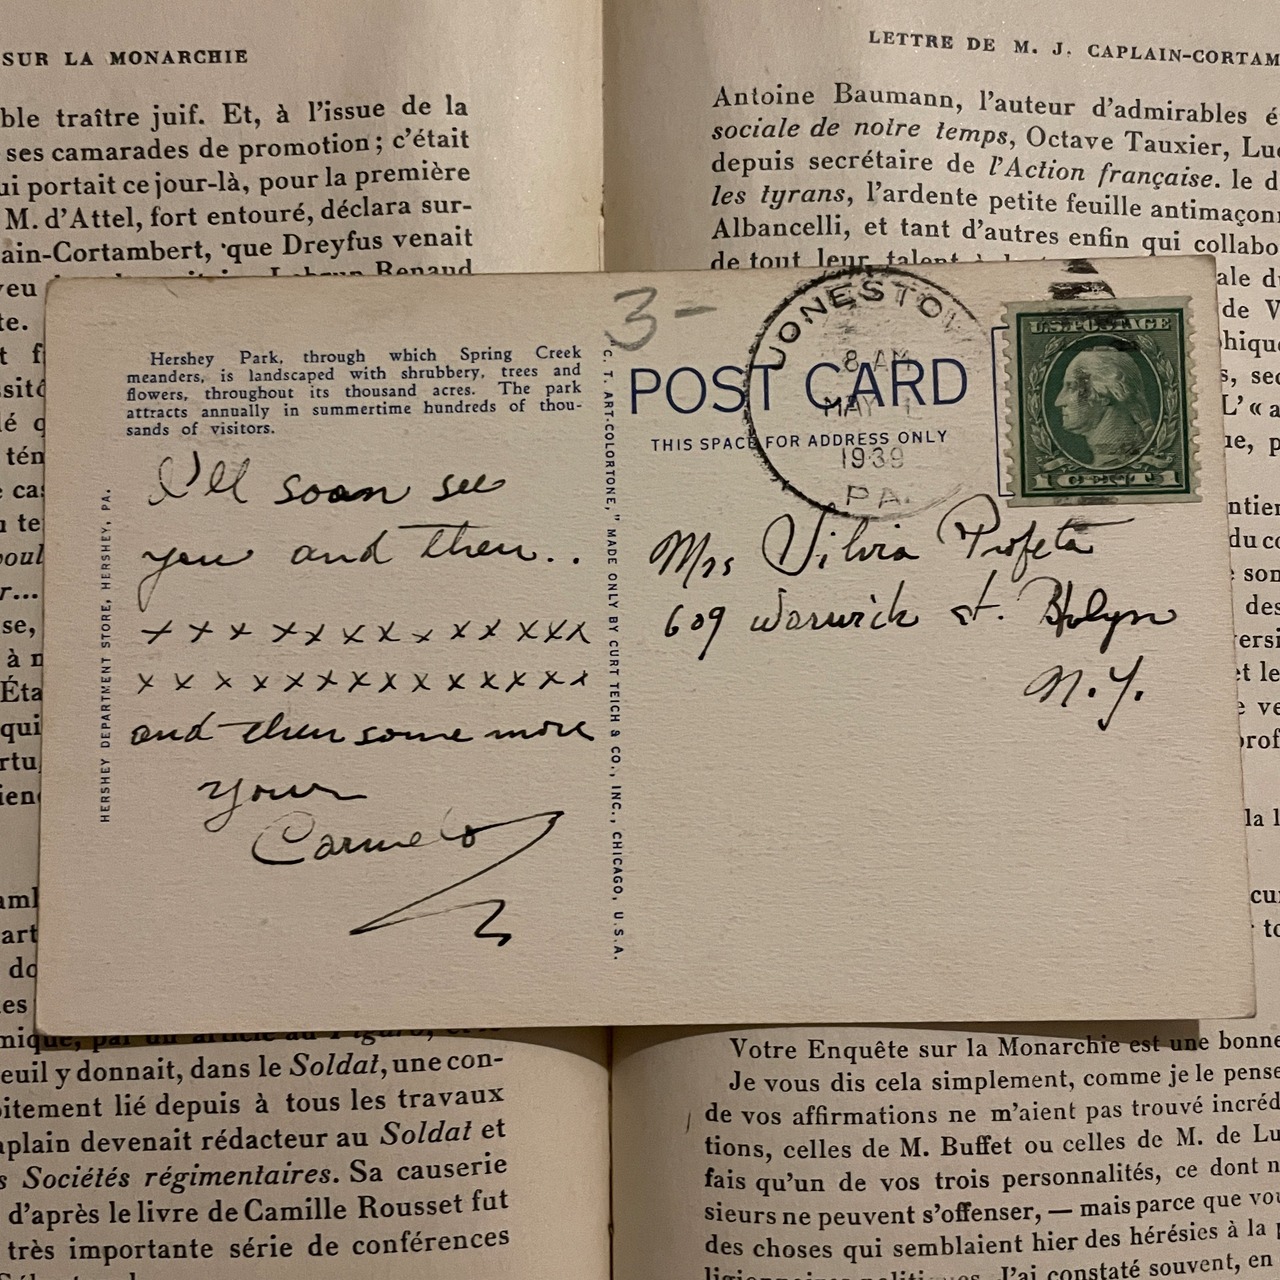 SUR LA MONARCHIE
ble traître juif. Et, à l'issue de la
ses camarades de promotion ; c'était
ui portait ce jour-là, pour la première
M. d'Attel, fort entouré, déclara sur-
ain-Cortambert, que Dreyfus venait
Lebrun Renaud
LETTRE DE M. J. CAPLAIN-CORTAM
Antoine Baumann, l'auteur d'admirables é
sociale de notre temps, Octave Tauxier, Luc
depuis secrétaire de l'Action française. le d
les tyrans, l'ardente petite feuille antimaçonn
Albancelli, et tant d'autres enfin qui collabo
de tout leur talent à
Hershey Park, through which Spring Creek
meanders, is landscaped with shrubbery, trees and
flowers, throughout its thousand acres. The park
attracts annually in summertime hundreds of thou-
sands of visitors.
I'll soon see
you and then..
x x x x x x x x x x x x x
x x x x x x x x x x x x x x
and then some more
Your
Carmelo
HERSHEY DEPARTMENT STORE, HERSHEY, PA.
C. T. ART-COLORTONE," MADE ONLY BY CURT TEICH & CO., INC., CHICAGO, U.S.A.
3-
POST CARD
THIS SPACE FOR ADDRESS ONLY
JONESTOW
8 AM
MAY 1
1939
PA.
U.S. POSTAGE
1 CENT 1
Mrs Silvia Profeta
609 Warwick st. Bklyn
N.Y.
mique, par un article au Figaro,
euil y donnait, dans le Soldat, une con-
oitement lié depuis à tous les travaux
aplain devenait rédacteur au Soldat et
s Sociétés régimentaires. Sa causerie
d'après le livre de Camille Rousset fut
très importante série de conférences
Votre Enquête sur la Monarchie est une bonne
Je vous dis cela simplement, comme je le pense
de vos affirmations ne m'aient pas trouvé incréd
tions, celles de M. Buffet ou celles de M. de Lu
fais qu'un de vos trois personnalités, ce dont n
sieurs ne peuvent s'offenser, — mais parce que vou
des choses qui semblaient hier des hérésies à la p
J'ai constaté souvent, en